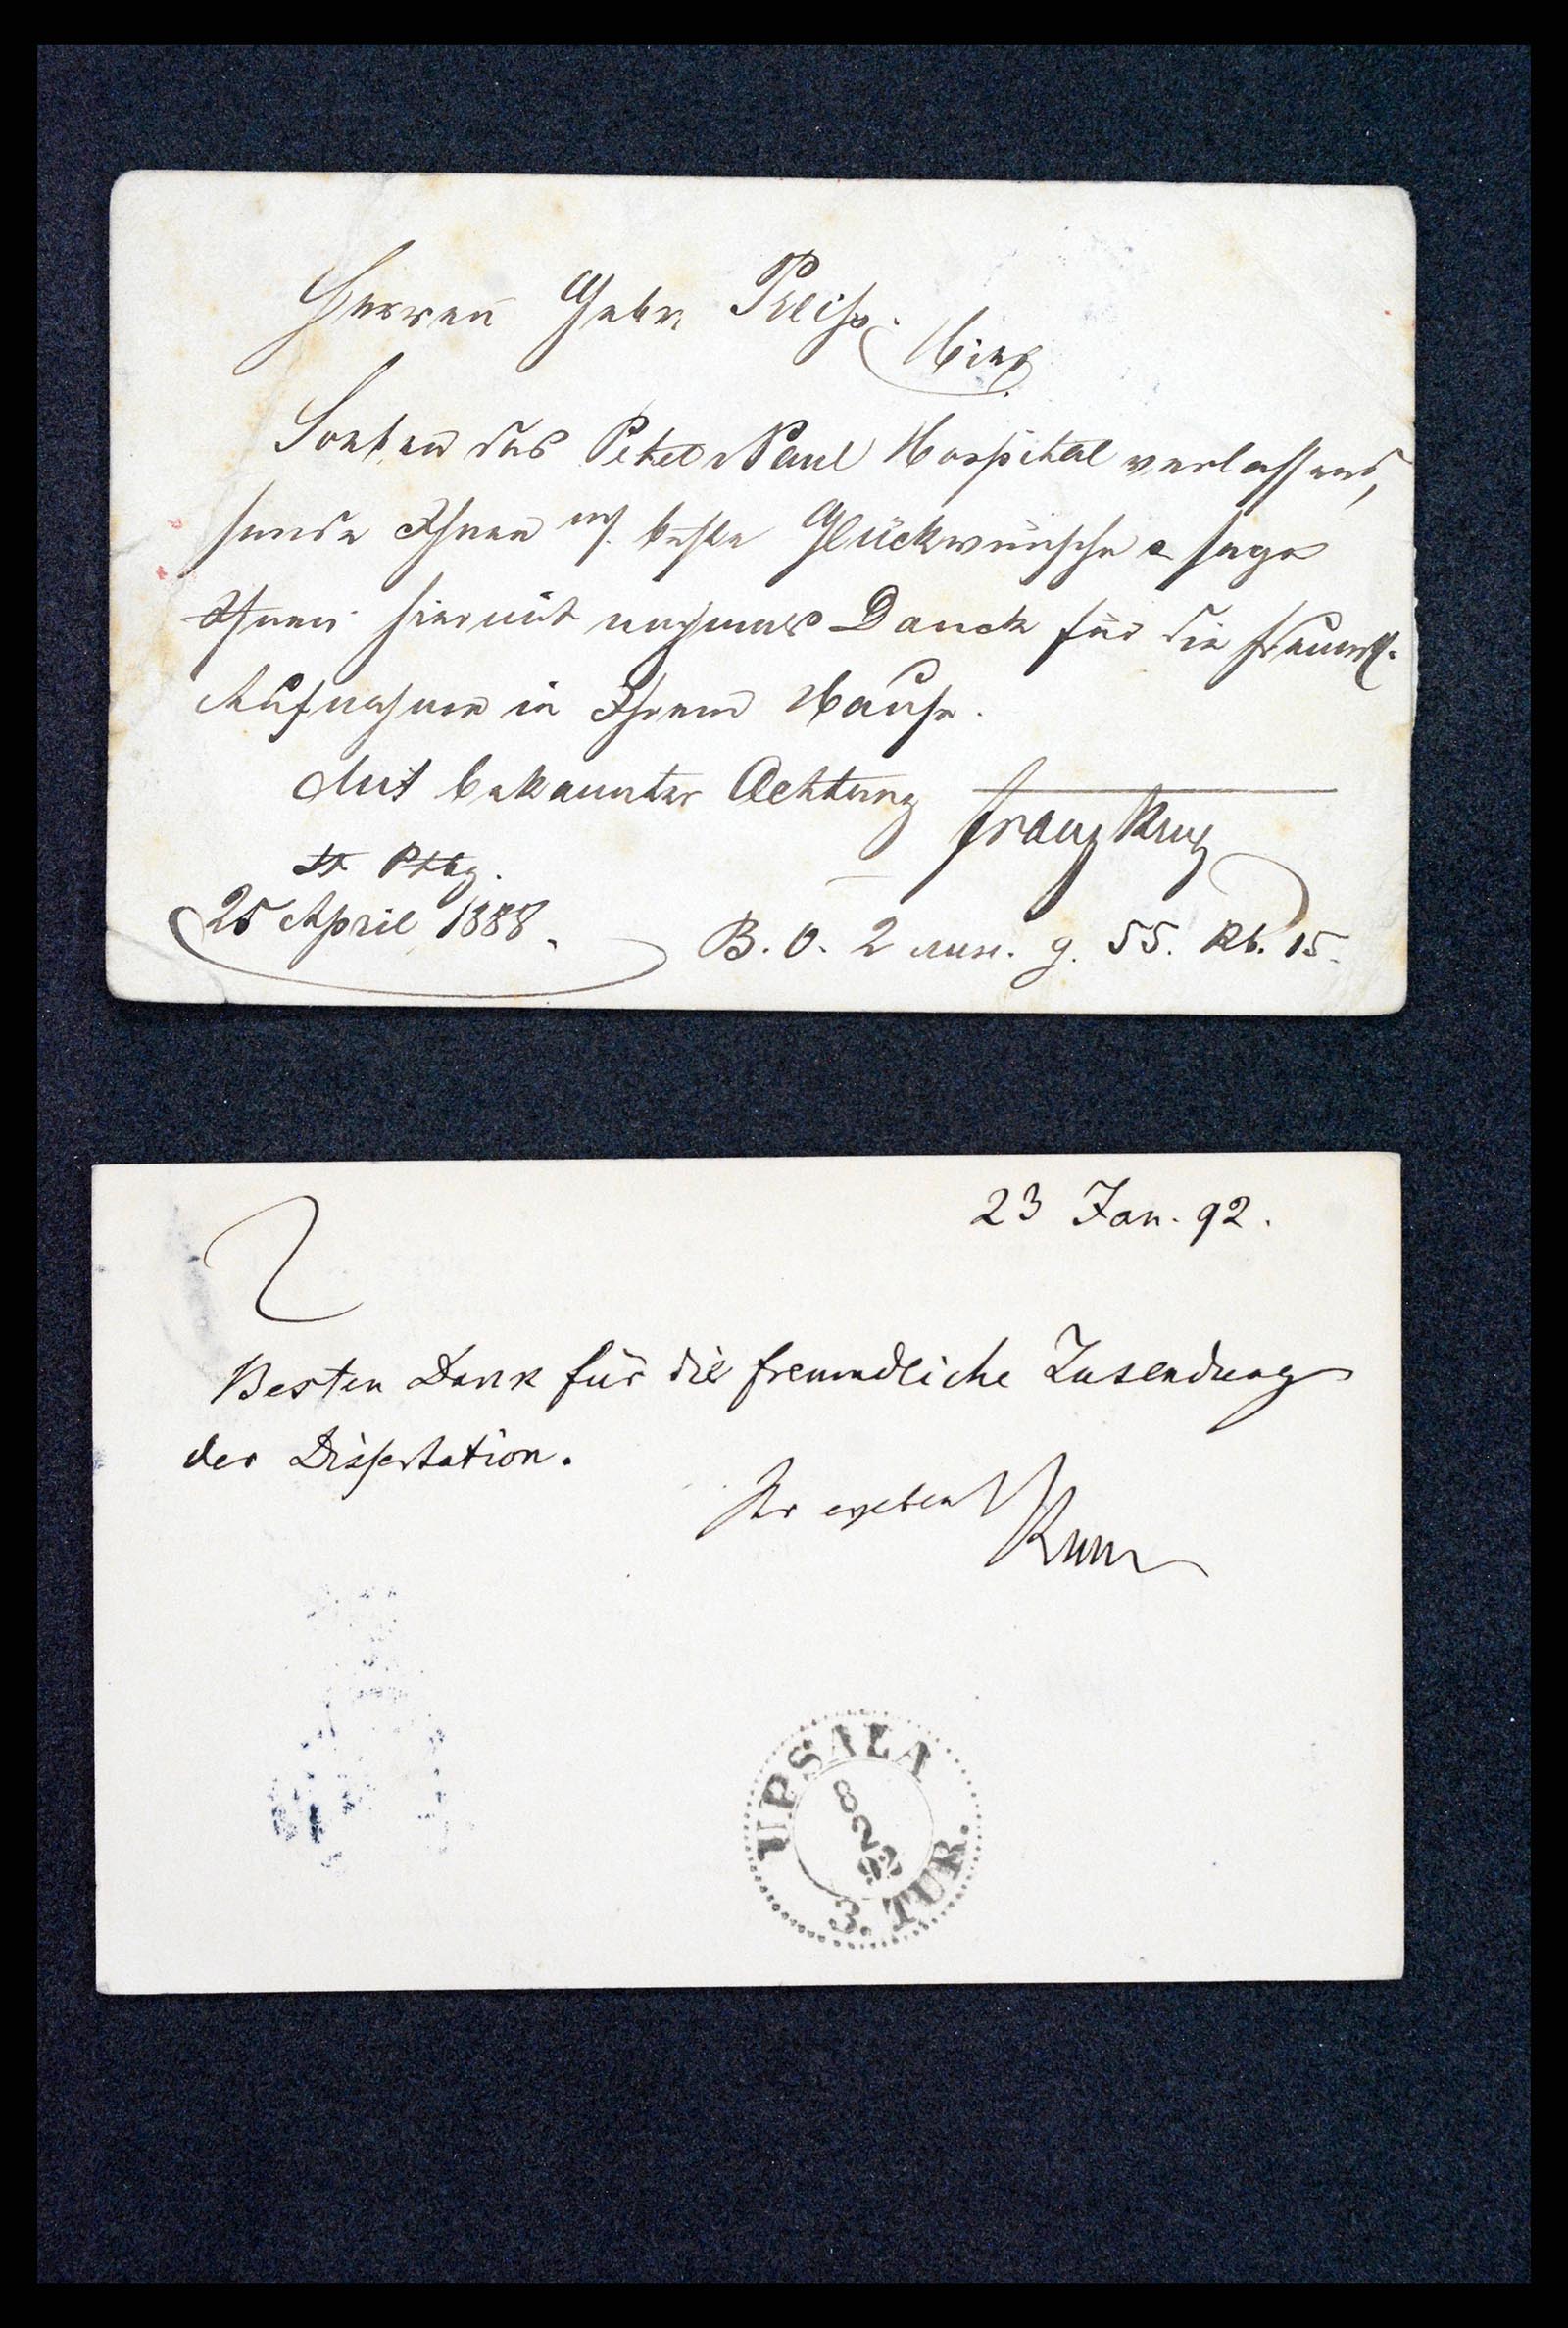 Herren Gebr.
Hier
Soeben das Peter Paul Hospital verlassend,
sende Ihnen beste Glückwünsche & sage
Ihnen hiermit nochmals Danck für die freundl.
Aufnahme in Ihrem Hause.
Mit bekannter Achtung
Franz Krug
St. Ptbg.
25 April 1888.
B. O. 2 g. 55. 15.
23 Jan. 92.
Besten Dank für die freundliche Zusendung
der Dissertation.
Ihr ergeben
UPSALA
8
2
92
3. TUR.